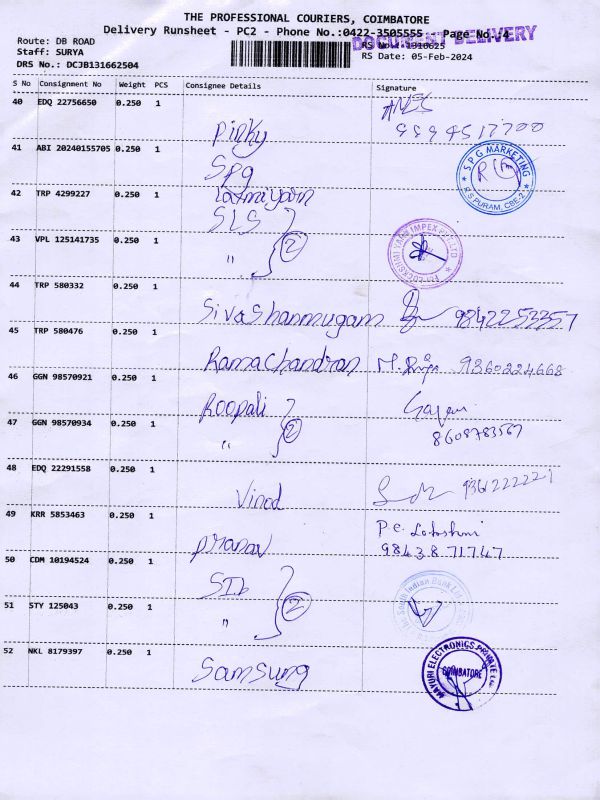 THE PROFESSIONAL COURIERS, COIMBATORE
Delivery Runsheet - PC2 - Phone No.:0422-3505555 - Page No.:4
DOCUMENT DELIVERY
Route: DB ROAD
Staff: SURYA
DRS No.: DCJB131662504
RS No.: 1310625
RS Date: 05-Feb-2024
S No Consignment No Weight PCS Consignee Details Signature
40 EDQ 22756650 0.250 1
Pinky
41 ABI 20240155705 0.250 1
Spg
SPG MARKETING
R S PURAM, CBE-2
42 TRP 4299227 0.250 1
Laxmiyarn
SLS
43 VPL 125141735 0.250 1
" 2
44 TRP 580332 0.250 1
SivaShanmugam 9842253357
45 TRP 580476 0.250 1
Ramachandran 9360224668
46 GGN 98570921 0.250 1
Roopali
47 GGN 98570934 0.250 1
" 2
8608783567
48 EDQ 22291558 0.250 1
Vinod
49 KRR 5853463 0.250 1
Pranav
P.C. Lakshmi
98438 71747
50 CDM 10194524 0.250 1
SIb
South Indian Bank
51 STY 125043 0.250 1
" 2
52 NKL 8179397 0.250 1
Samsung
MAYURI ELECTRONICS PRIVATE
COIMBATORE